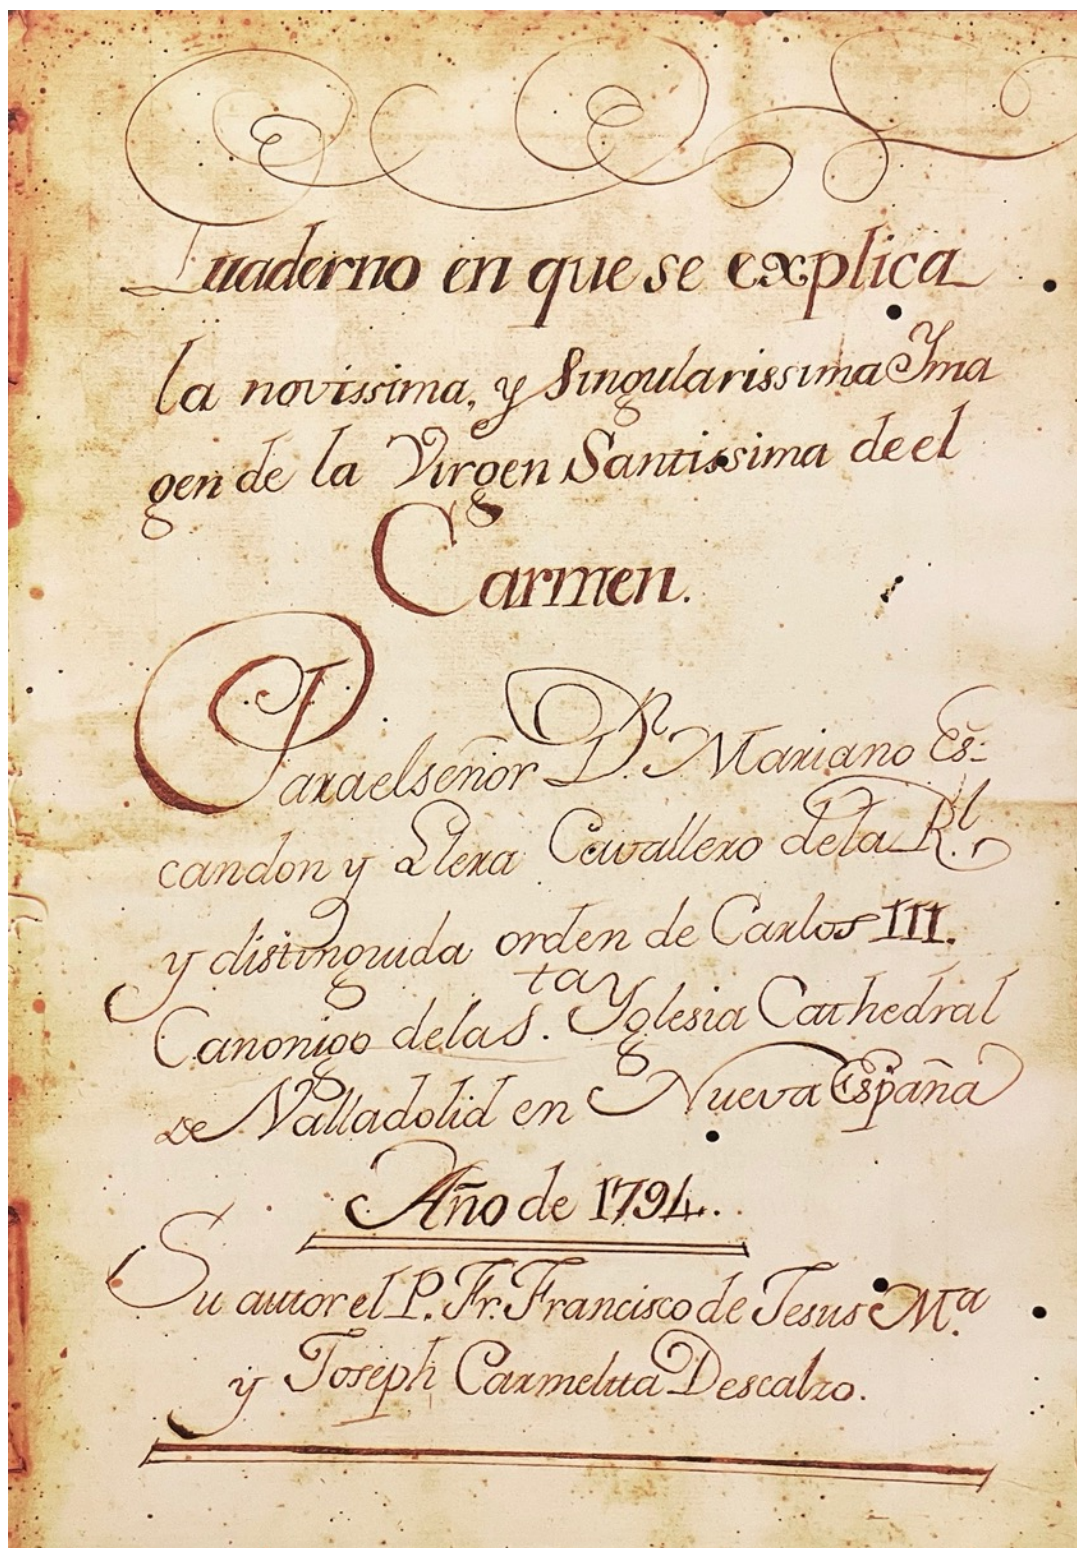 Cuaderno en que se explica
la novissima, y Singularissima Yma
gen de la Virgen Santissima de el
Carmen.
Para el señor D.n Mariano Es-
candon y Llera Cavallero de la R.l
y distinguida orden de Carlos III.
Canonigo de la S.ta Yglesia Cathedral
de Valladolid en Nueva España
Año de 1794.
Su autor el P. Fr. Francisco de Jesus M.a
y Joseph Carmelita Descalzo.